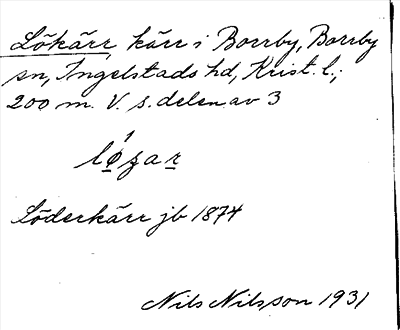 Lökärr, kärr i Borrby, Borrby
sn, Ingelstads hd, Krist. l.;
200 m. V. s. delen av 3
Löderkärr jb 1874
Nils Nilsson 1931